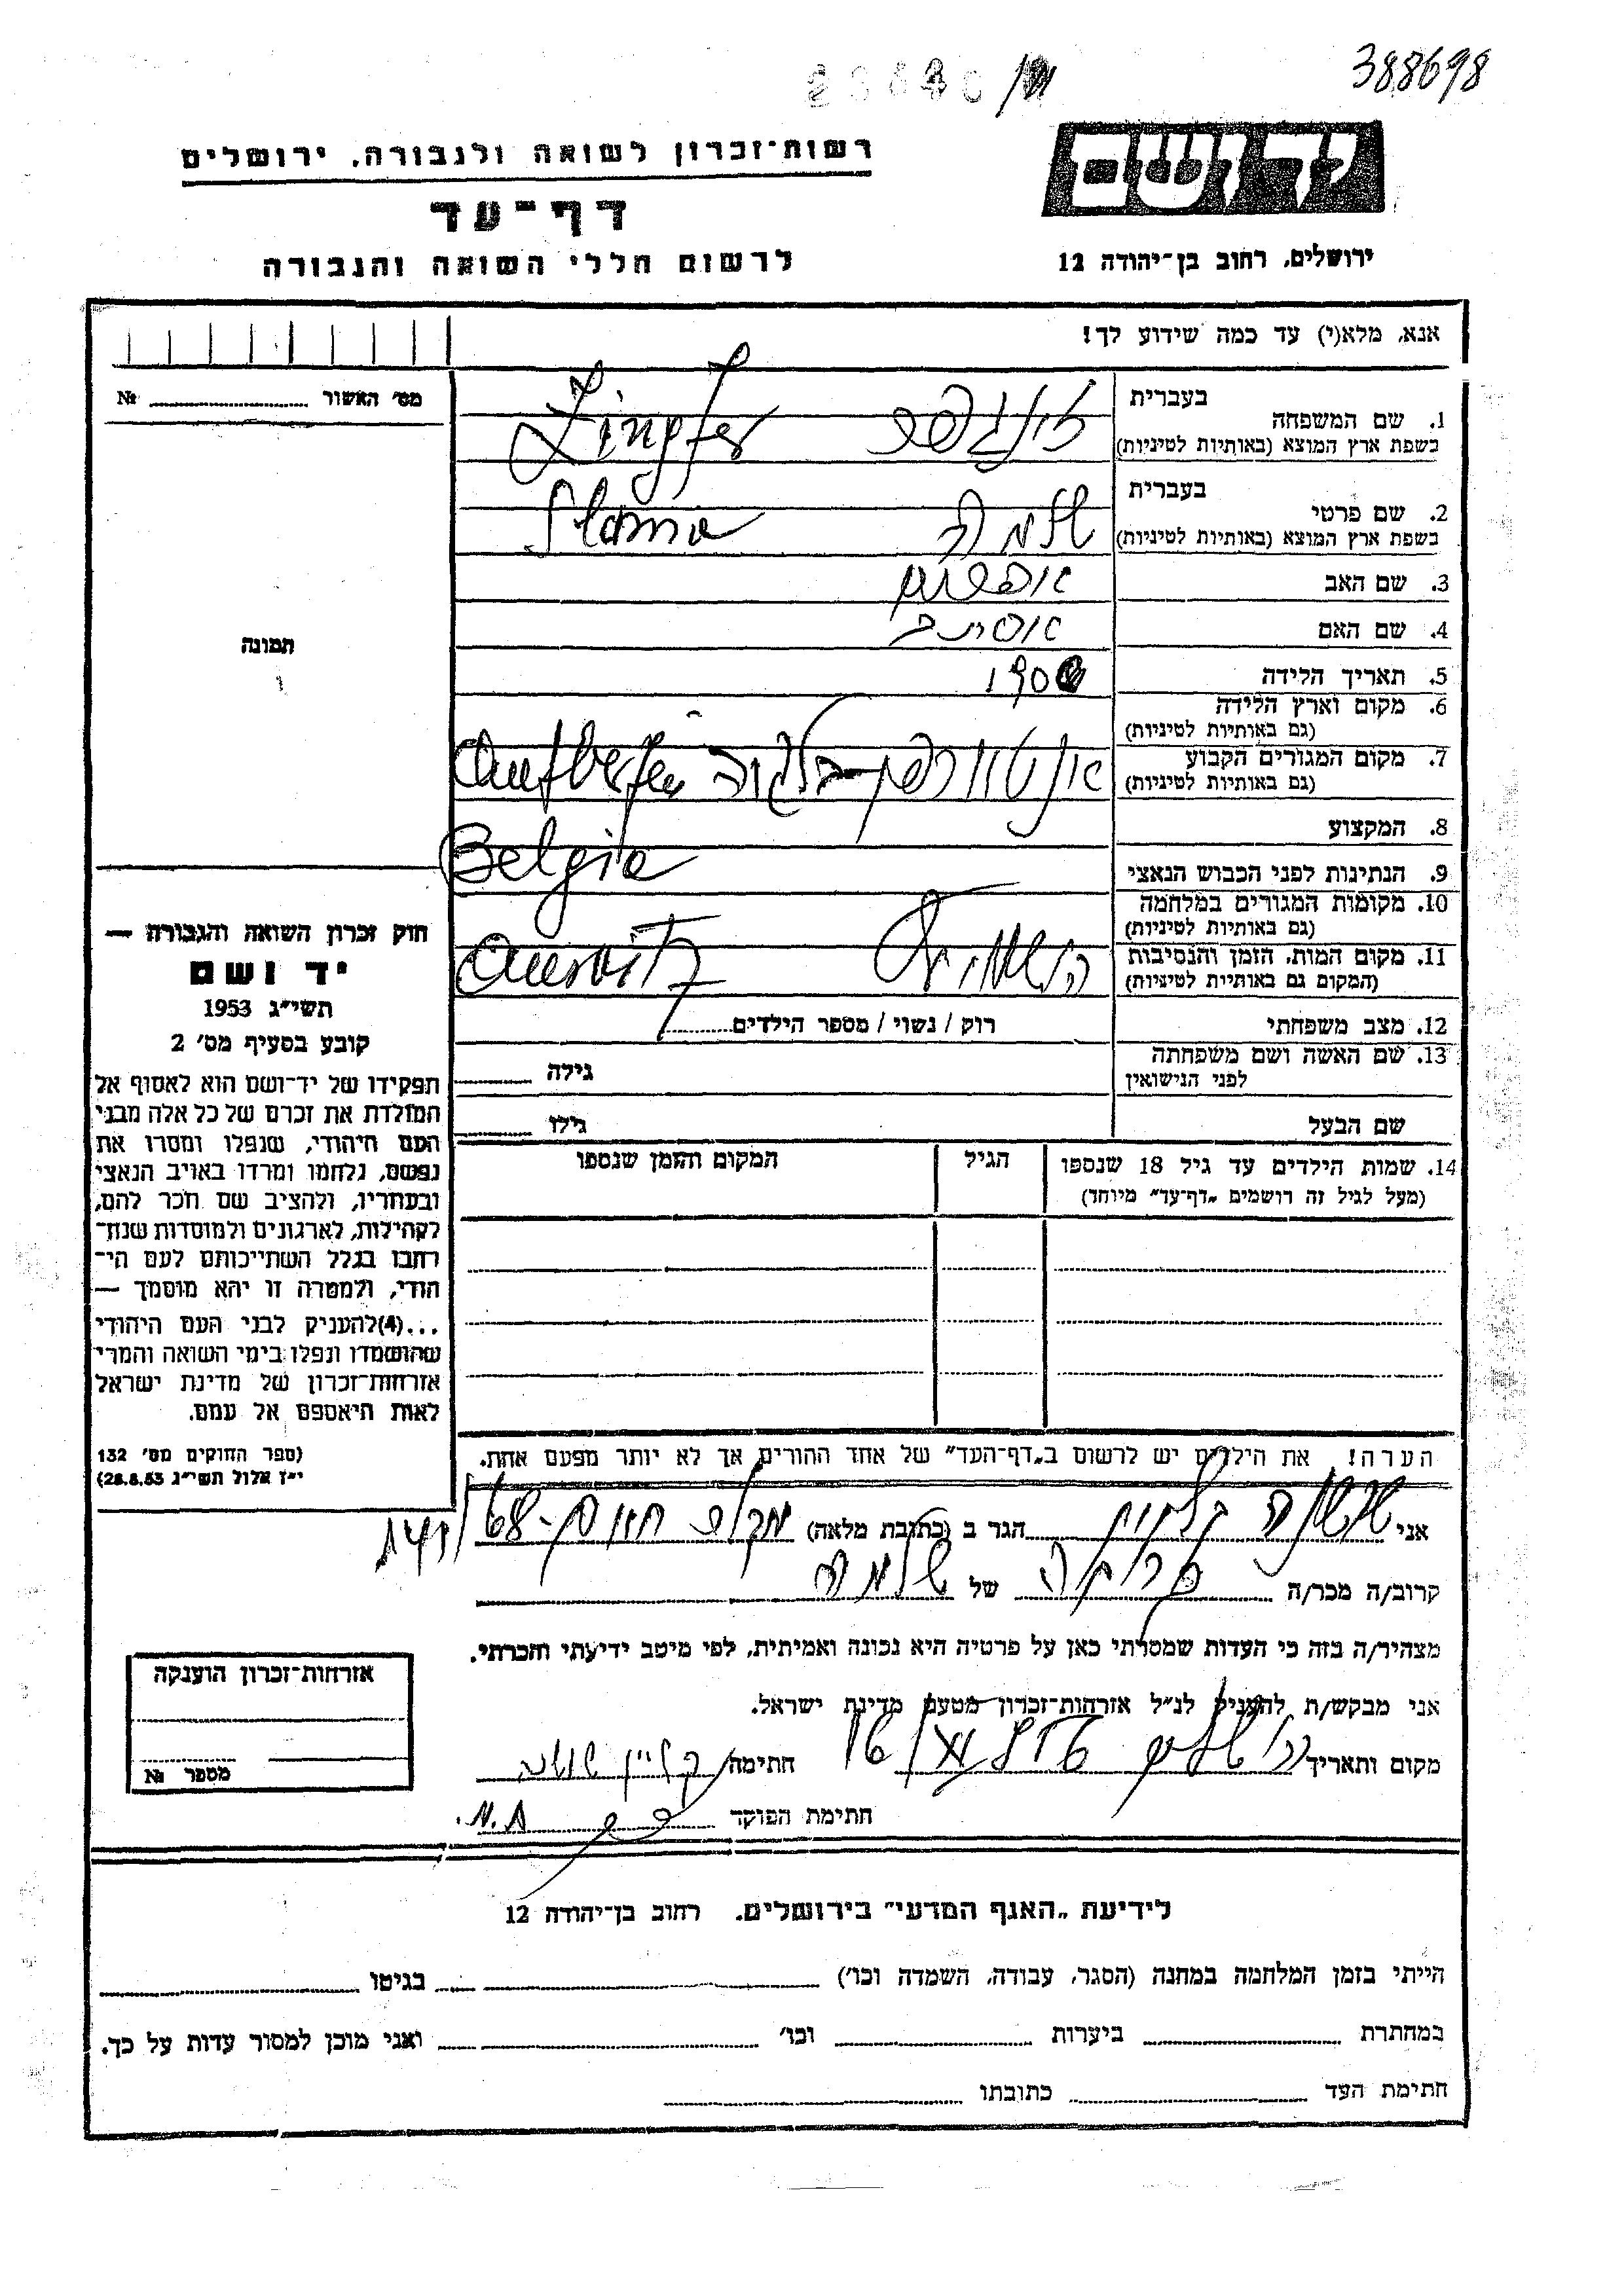 388698
רשות־זכרון לשואה ולגבורה, ירושלים
דף־עד
לרשום חללי השואה והגבורה
יד ושם
ירושלים, רחוב בן־יהודה 12
אנא, מלא(י) עד כמה שידוע לך!
מס׳ האשור № 
תמונה
1. שם המשפחה
בעברית
בשפת ארץ המוצא (באותיות לטיניות)
Lingfer
2. שם פרטי
בעברית
שלמה
בשפת ארץ המוצא (באותיות לטיניות)
3. שם האב
אפרים
4. שם האם
5. תאריך הלידה
6. מקום וארץ הלידה
(גם באותיות לטיניות)
7. מקום המגורים הקבוע
(גם באותיות לטיניות)
אנטוורפן־בלגיה
8. המקצוע
Belgia
9. הנתינות לפני הכבוש הנאצי
10. מקומות המגורים במלחמה
(גם באותיות לטיניות)
11. מקום המות, הזמן והנסיבות
(המקום גם באותיות לטיניות)
12. מצב משפחתי
רוק / נשוי / מספר הילדים
13. שם האשה ושם משפחתה
לפני הנישואין
גילה
שם הבעל
גילו
14. שמות הילדים עד גיל 18 שנספו
(מעל לגיל זה רושמים „דף־עד״ מיוחד)
הגיל
המקום והזמן שנספו
הערה! את הילדים יש לרשום ב„דף־העד״ של אחד ההורים אך לא יותר מפעם אחת.
חוק זכרון השואה והגבורה —
יד ושם
תשי״ג 1953
קובע בסעיף מס׳ 2
תפקידו של יד־ושם הוא לאסוף אל
המולדת את זכרם של כל אלה מבני
העם היהודי, שנפלו ומסרו את
נפשם, נלחמו ומרדו באויב הנאצי
ובעוזריו, ולהציב שם וזכר להם,
לקהילות, לארגונים ולמוסדות שנח־
רחבו בגלל השתייכותם לעם הי־
הודי, ולמטרה זו יהא מוסמך —
...(4)להעניק לבני העם היהודי
שהושמדו ונפלו בימי השואה והמרי
אזרחות־זכרון של מדינת ישראל
לאות היאספם אל עמם.
(ספר החוקים מס׳ 132
י״ז אלול תשי״ג 28.8.53)
אני שושנה קליין הגר ב (כתובת מלאה)
קרוב/ה מכר/ה של שלמה
מצהיר/ה בזה כי העדות שמסרתי כאן על פרטיה היא נכונה ואמיתית, לפי מיטב ידיעתי והכרתי.
אני מבקש/ת להעניק לנ״ל אזרחות־זכרון מטעם מדינת ישראל.
מקום ותאריך ירושלים חתימה קליין שושנה
חתימת הפוקד
אזרחות־זכרון הוענקה
מספר №
לידיעת „האגף המדעי״ בירושלים, רחוב בן־יהודה 12
הייתי בזמן המלחמה במחנה (הסגר, עבודה, השמדה וכו׳) בגיטו
במחתרת ביערות וכו׳ ואני מוכן למסור עדות על כך.
חתימת העד כתובתו